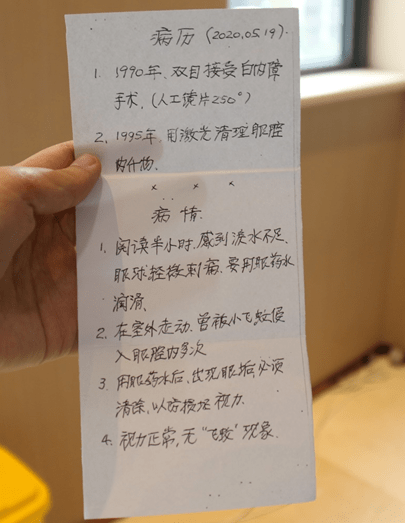 病历 (2020.05.19).
1. 1990年、双目接受白内障
手术. (人工镜片250°)
2. 1995年、用激光清理眼腔
内什物.
× × ×
病情.
1. 阅读半小时、感到泪水不足、
眼球轻微刺痛、要用眼药水
润滑、
2. 在室外走动、曾被小飞蚊侵
入眼腔内多次
3. 用眼药水后、出现眼垢、必须
清除,以防损坏视力.
4. 视力正常,无“飞蚊”现象.